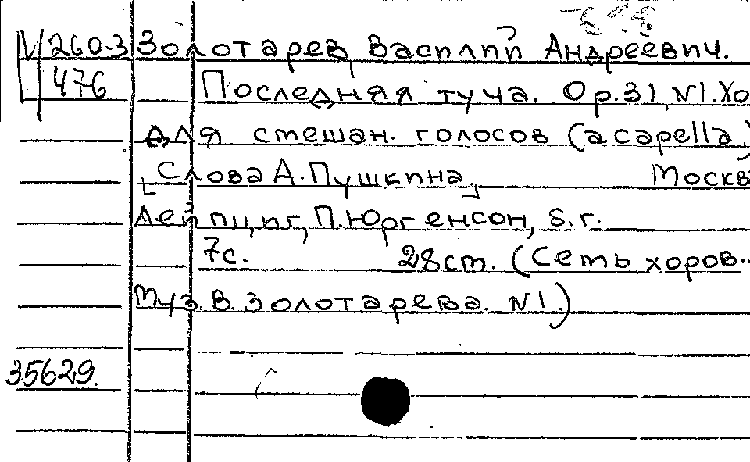 V 260-3 Золотарев, Василий Андреевич.
476 Последняя туча. Op.31, N1. Хо
для смешан. голосов (a capella)
[Слова А. Пушкина] Москв
Лейпциг, П. Юргенсон, s. г.
7с. 28 ст. (Сеть хоров..
Муз. В. Золотарева. N1.)
35629.